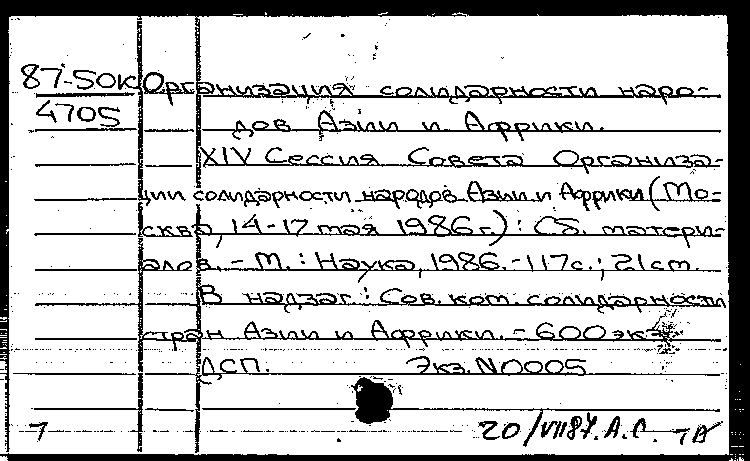 87-50К Организация солидарности наро-
4705 дов Азии и Африки.
XIV Сессия Совета Организа-
ции солидарности народов Азии и Африки (Мо-
сква, 14-17 мая 1986 г.) : Сб. матери-
алов. - М. : Наука, 1986. - 117 с. ; 21 см.
В надзаг. : Сов. ком. солидарности
стран Азии и Африки. - 600 экз.
ДСП. Экз. N0005
7 20/VII87. А.С.